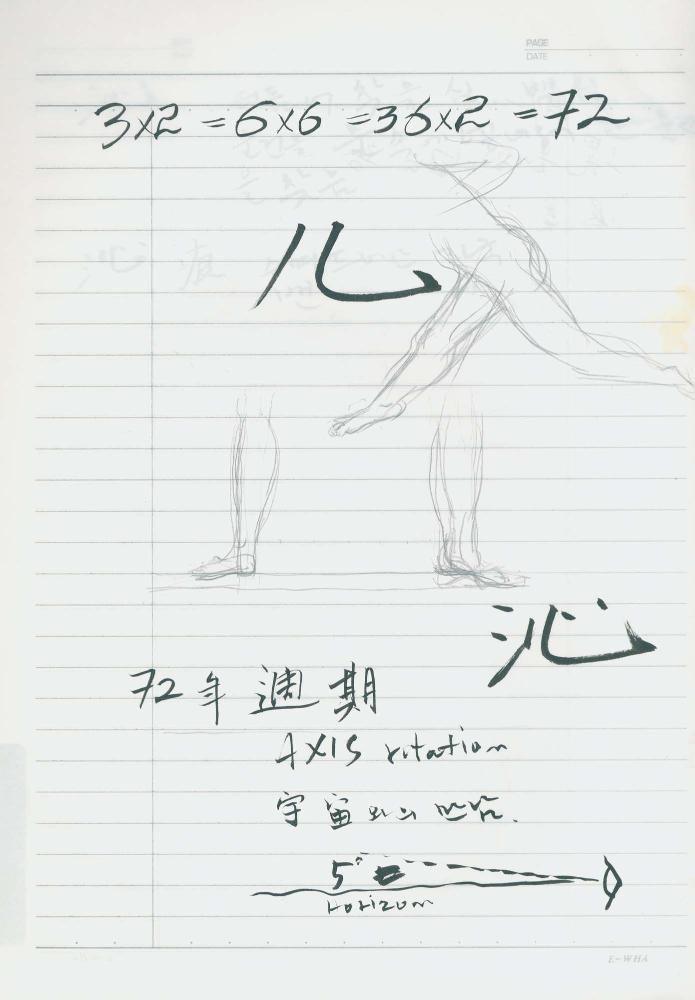 PAGE
DATE
3x2 = 6x6 = 36x2 = 72
儿
沁
72年 週期
AXIS rotation
宇宙와의 만남.
5°
horizum
E-WHA